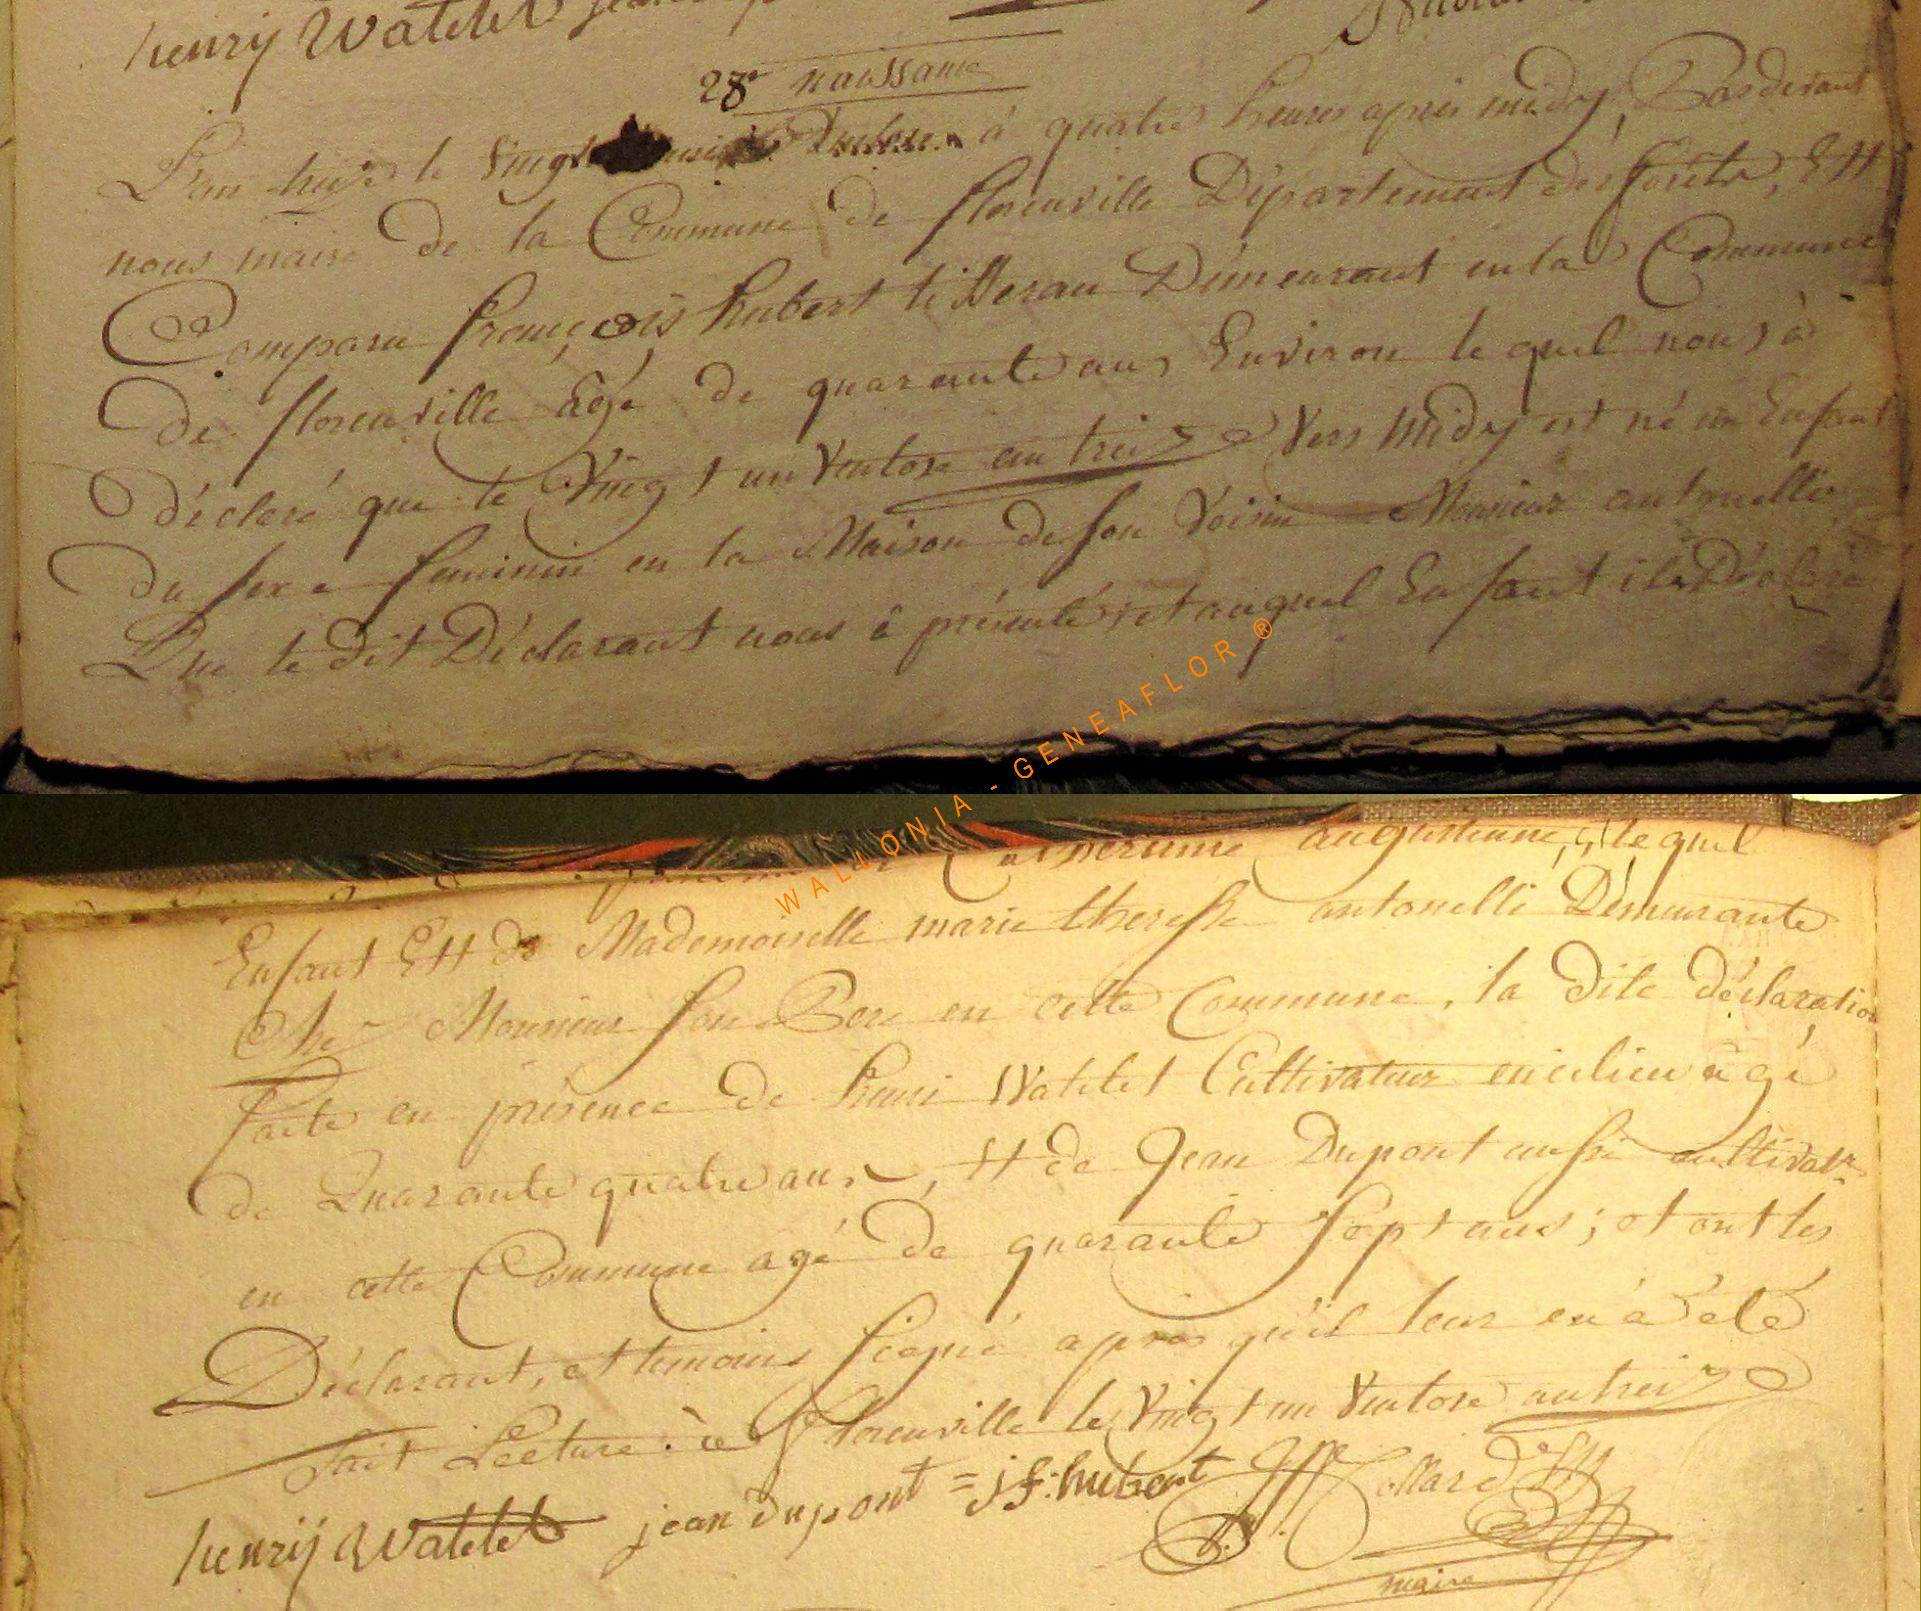 henrÿ Watelet
28e naissance
L'an treize le Vingt Ventose à quatre heures apres midy, Pardevant
nous maire de la Commune de florenville Département des forêts, Est
Comparu françois hubert tisseran Démeurant en la Commune
de florenville âgé de quarante ans Environ le quel nous à
déclaré que le Vingt un Ventose an treize Vers Midy est né un Enfant
du sexe feminin en la Maison de son Voisin Monsieur antonelli
Que le dit Déclarant nous à présenté et auquel Enfant il à Déclaré
Catherinne augustinne, le quel
Enfant Est de Mademoiselle marie theresse antonelli Démeurante
Chez Monsieur son Pere en cette Commune, la dite déclaration
faite en présence de henri Watelet Cultivateur en ce lieu âgé
de Quarante quatre ans, et de Jean Dupont aussi cultivatr
en cette Commune agé de quarante sept ans; et ont les
Déclarant, et temoins signé après qu'il leur en à été
fait Lecture: à florenville le Vingt un Ventose an treize
henrÿ Watelet jean dupont = j f: hubert Collard
maire
WALLONIA - GENEAFLOR ®